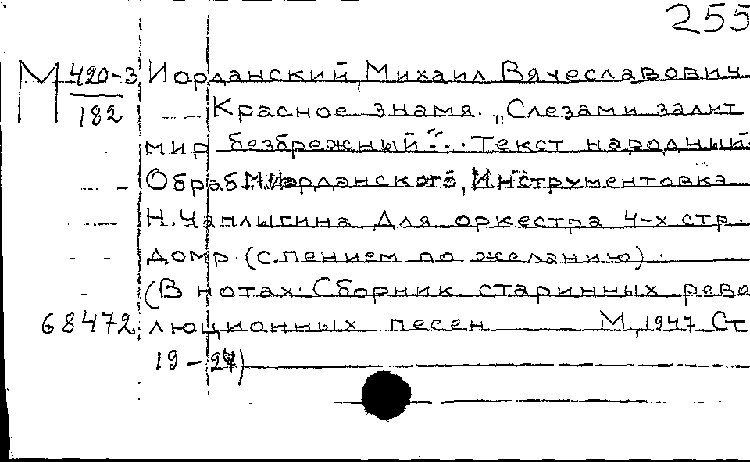 255
М 420-3 Иорданский, Михаил Вячеславович
182 Красное знамя. „Слезами залит
мир безбрежный"... Текст народный
Обраб. М. Иорданского, Инструментовка
Н. Чаплыгина для оркестра 4-х стр.
домр. (с пением по желанию).
(В нотах: Сборник старинных рево
68472 люционных песен М, 1947 Ст
19-27)